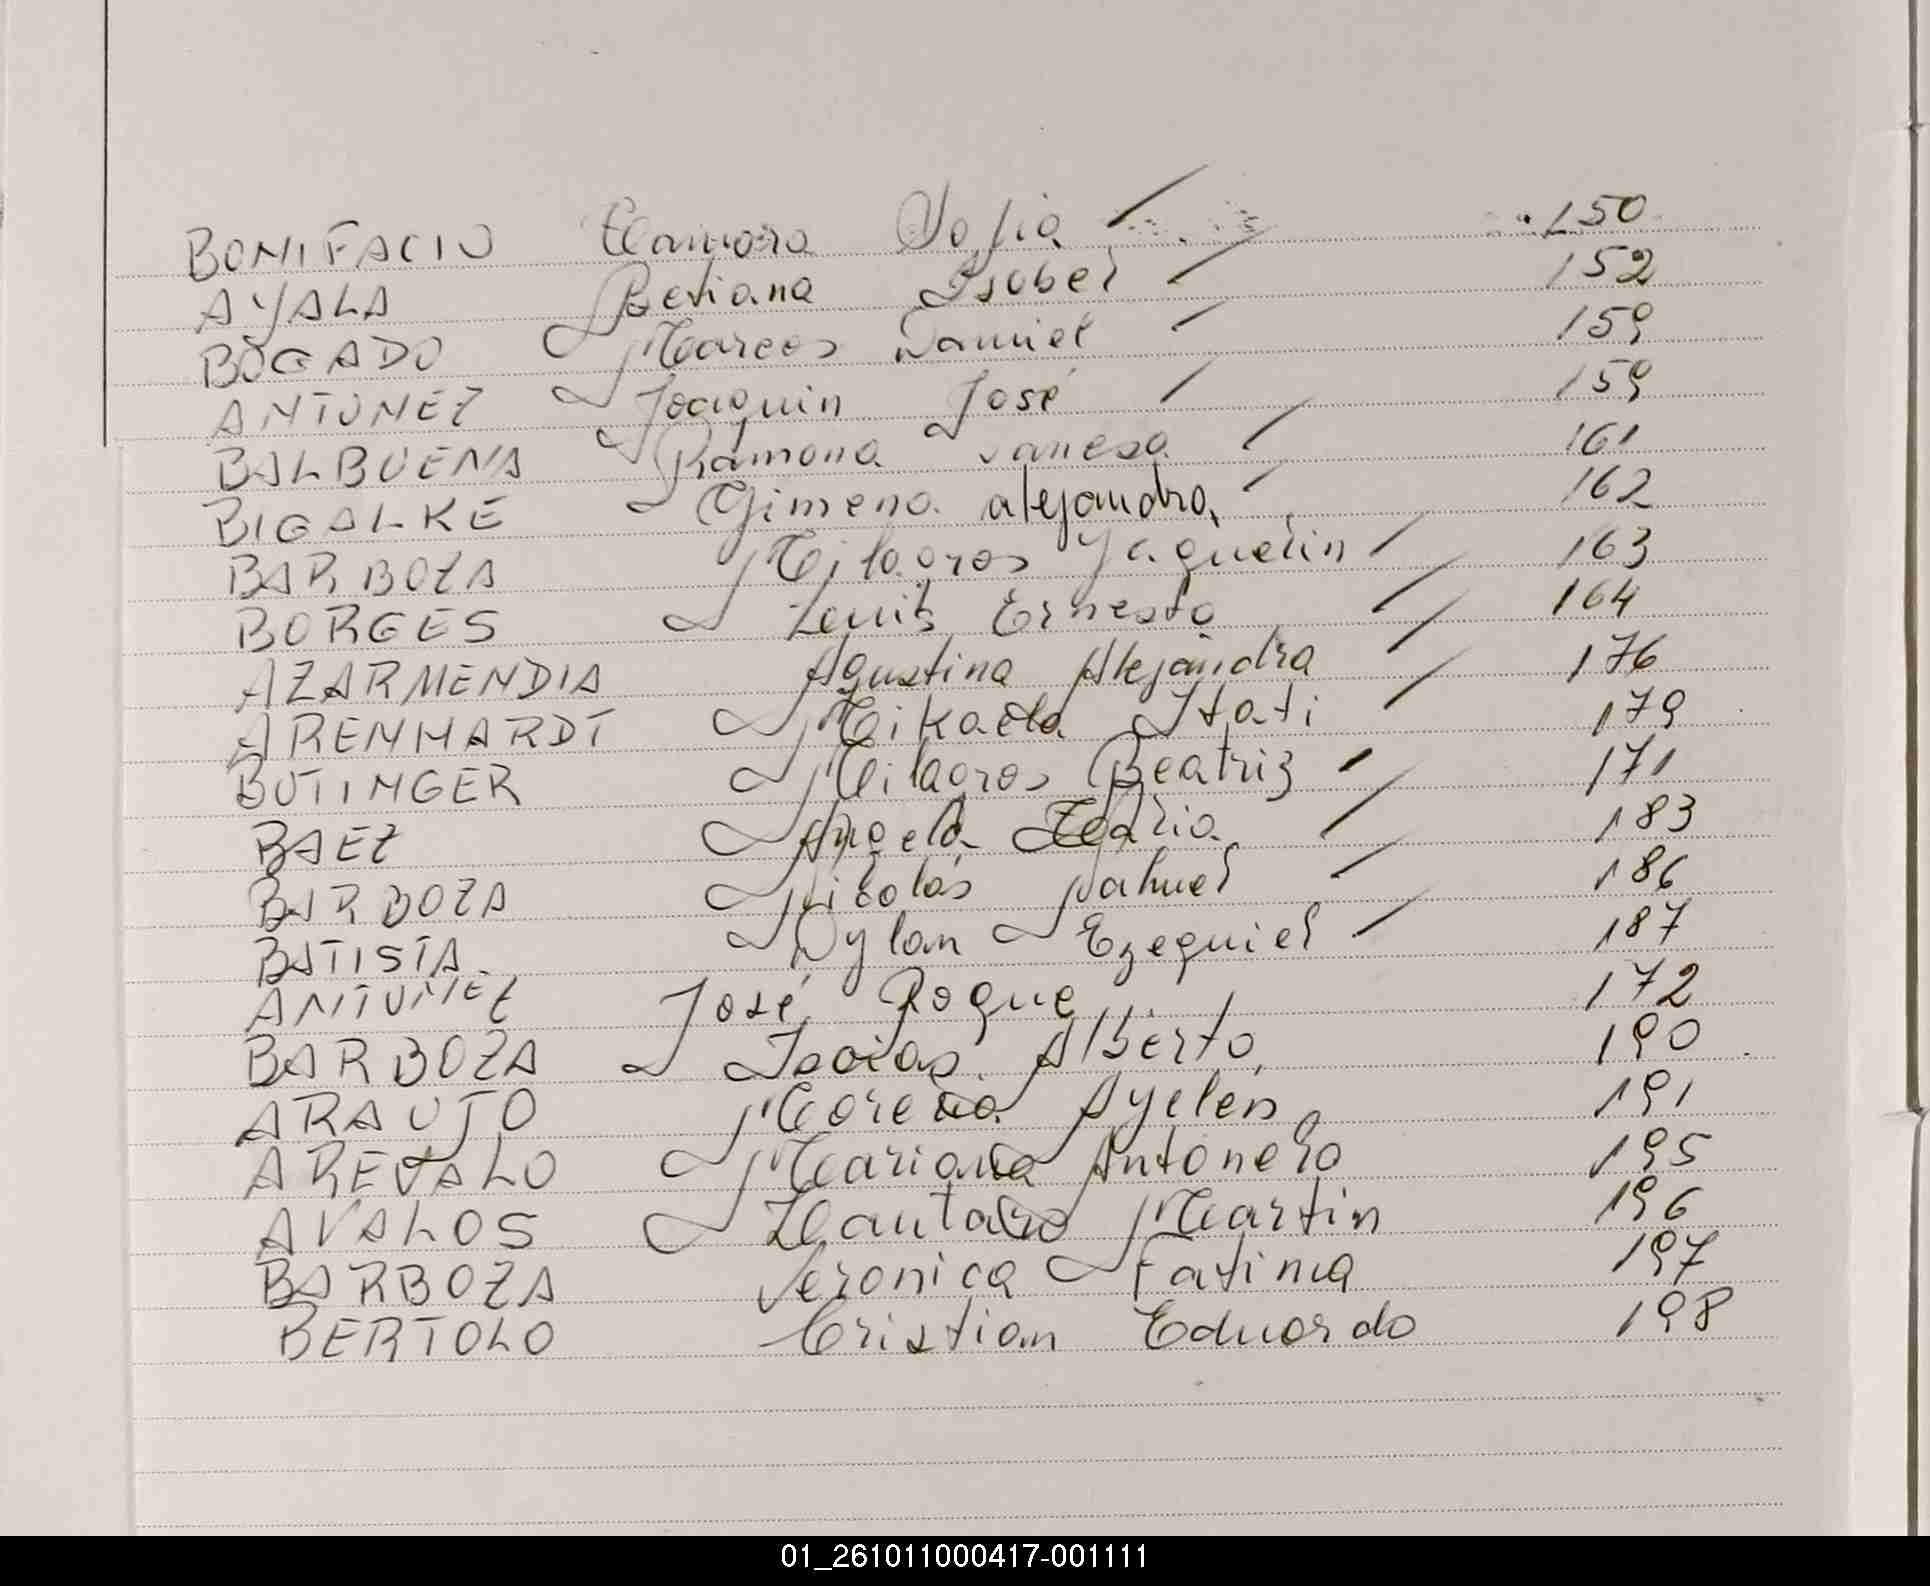 BONIFACIO Camora Sofia 150
AYALA Betiana Isabel 152
BOGADO Marcos Daniel 159
ANTUNEZ Joaquin José 159
BALBUENA Ramona Vanesa 161
BIGALKE Gimena Alejandra 162
BARBOZA Milagros Yaquelin 163
BORGES Luis Ernesto 164
AZARMENDIA Agustina Alejandra 176
ARENHARDT Mikaela Itati 179
BUTINGER Milagros Beatriz 171
BAEZ Angela 183
BARBOZA Nicolás Nahuel 186
BATISTA Dylan Ezequiel 187
ANTUNEZ José Roque 172
BARBOZA Isaias Alberto 190
ARAUJO Morena Ayelen 191
AREVALO Mariana Antonela 195
AVALOS Lautaro Martin 196
BARBOZA Veronica Fatima 197
BERTOLO Cristian Eduardo 198
01_261011000417-001111